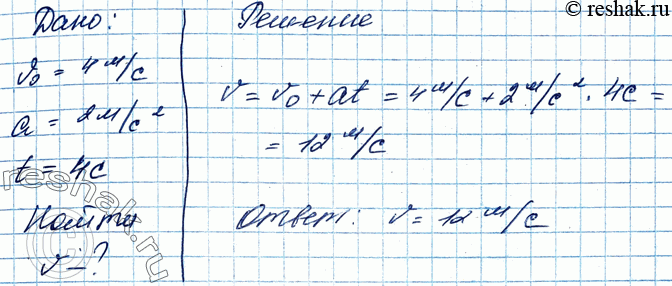 © reshak.ru
Дано:
v₀ = 4 м/с
a = 2 м/с²
t = 4с
Найти
v - ?
Решение
v = v₀ + at = 4 м/с + 2 м/с² · 4с =
= 12 м/с
Ответ: v = 12 м/с
reshak.ru